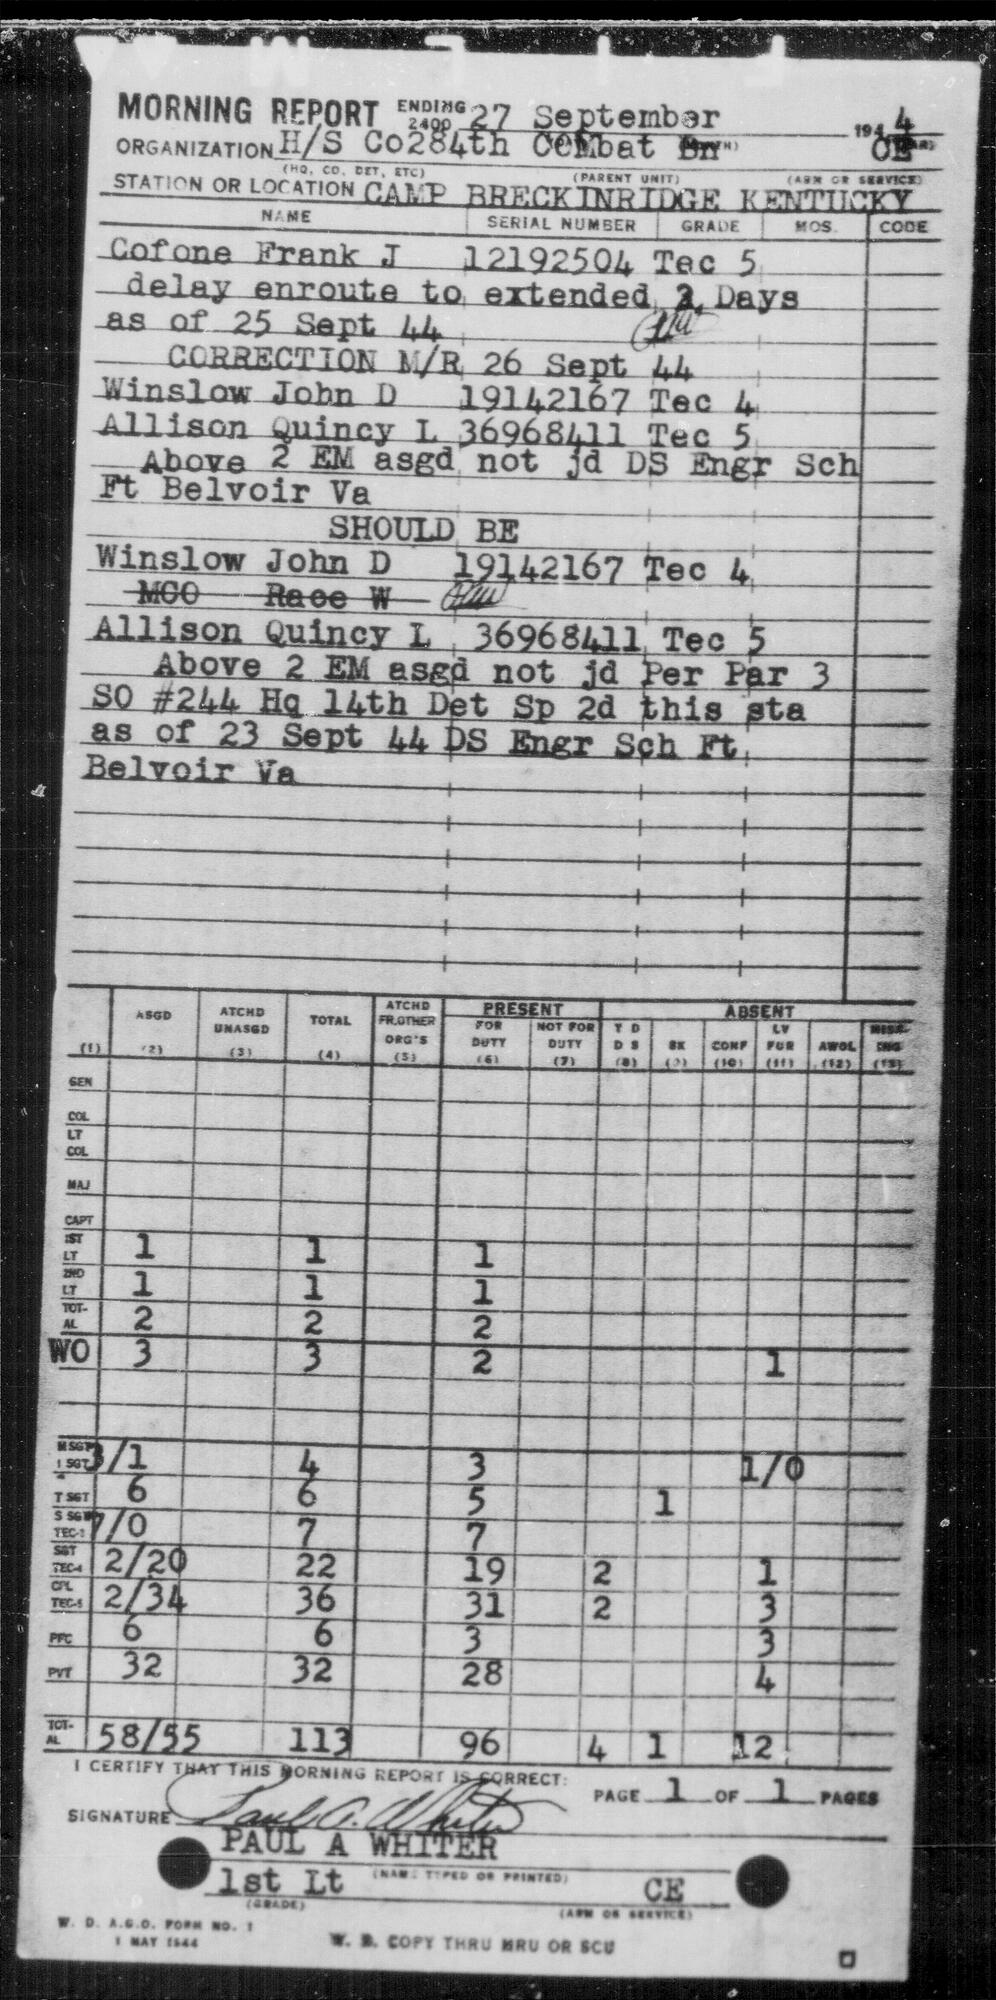 MORNING REPORT ENDING 2400 27 September 1944
ORGANIZATION H/S Co 284th Combat Bn CE
(HQ, CO, DET, ETC) (PARENT UNIT) (ARM OR SERVICE)
STATION OR LOCATION CAMP BRECKINRIDGE KENTUCKY
NAME SERIAL NUMBER GRADE MOS. CODE
Cofone Frank J 12192504 Tec 5
delay enroute to extended Days
as of 25 Sept 44
CORRECTION M/R 26 Sept 44
Winslow John D 19142167 Tec 4
Allison Quincy L 36968411 Tec 5
Above 2 EM asgd not jd DS Engr Sch
Ft Belvoir Va
SHOULD BE
Winslow John D 19142167 Tec 4
MCO Race W
Allison Quincy L 36968411 Tec 5
Above 2 EM asgd not jd Per Par 3
SO #244 Hq 14th Det Sp 2d this sta
as of 23 Sept 44 DS Engr Sch Ft
Belvoir Va
PRESENT ABSENT
(1) ASGD (2) ATCHD UNASGD (3) TOTAL (4) ATCHD FR.OTHER ORG'S (5) FOR DUTY (6) NOT FOR DUTY (7) T D D S (8) SK (9) CONF (10) LV FUR (11) AWOL (12) MISSING (13)
GEN
COL
LT COL
MAJ
CAPT
1ST LT 1 1 1
2ND LT 1 1 1
TOTAL 2 2 2
WO 3 3 2 1
M SGT 1 SGT 3/1 4 3 1/0
T SGT 6 6 5 1
S SGT TEC-3 7/0 7 7
SGT TEC-4 2/20 22 19 2 1
CPL TEC-5 2/34 36 31 2 3
PFC 6 6 3 3
PVT 32 32 28 4
TOT-AL 58/55 113 96 4 1 12
I CERTIFY THAT THIS MORNING REPORT IS CORRECT:
PAGE 1 OF 1 PAGES
SIGNATURE Paul A. Whiter
PAUL A WHITER
(NAME TYPED OR PRINTED)
1st Lt CE
(GRADE) (ARM OR SERVICE)
W. D. A.G.O. FORM NO. 1
1 MAY 1944
W. D. COPY THRU MRU OR SCU